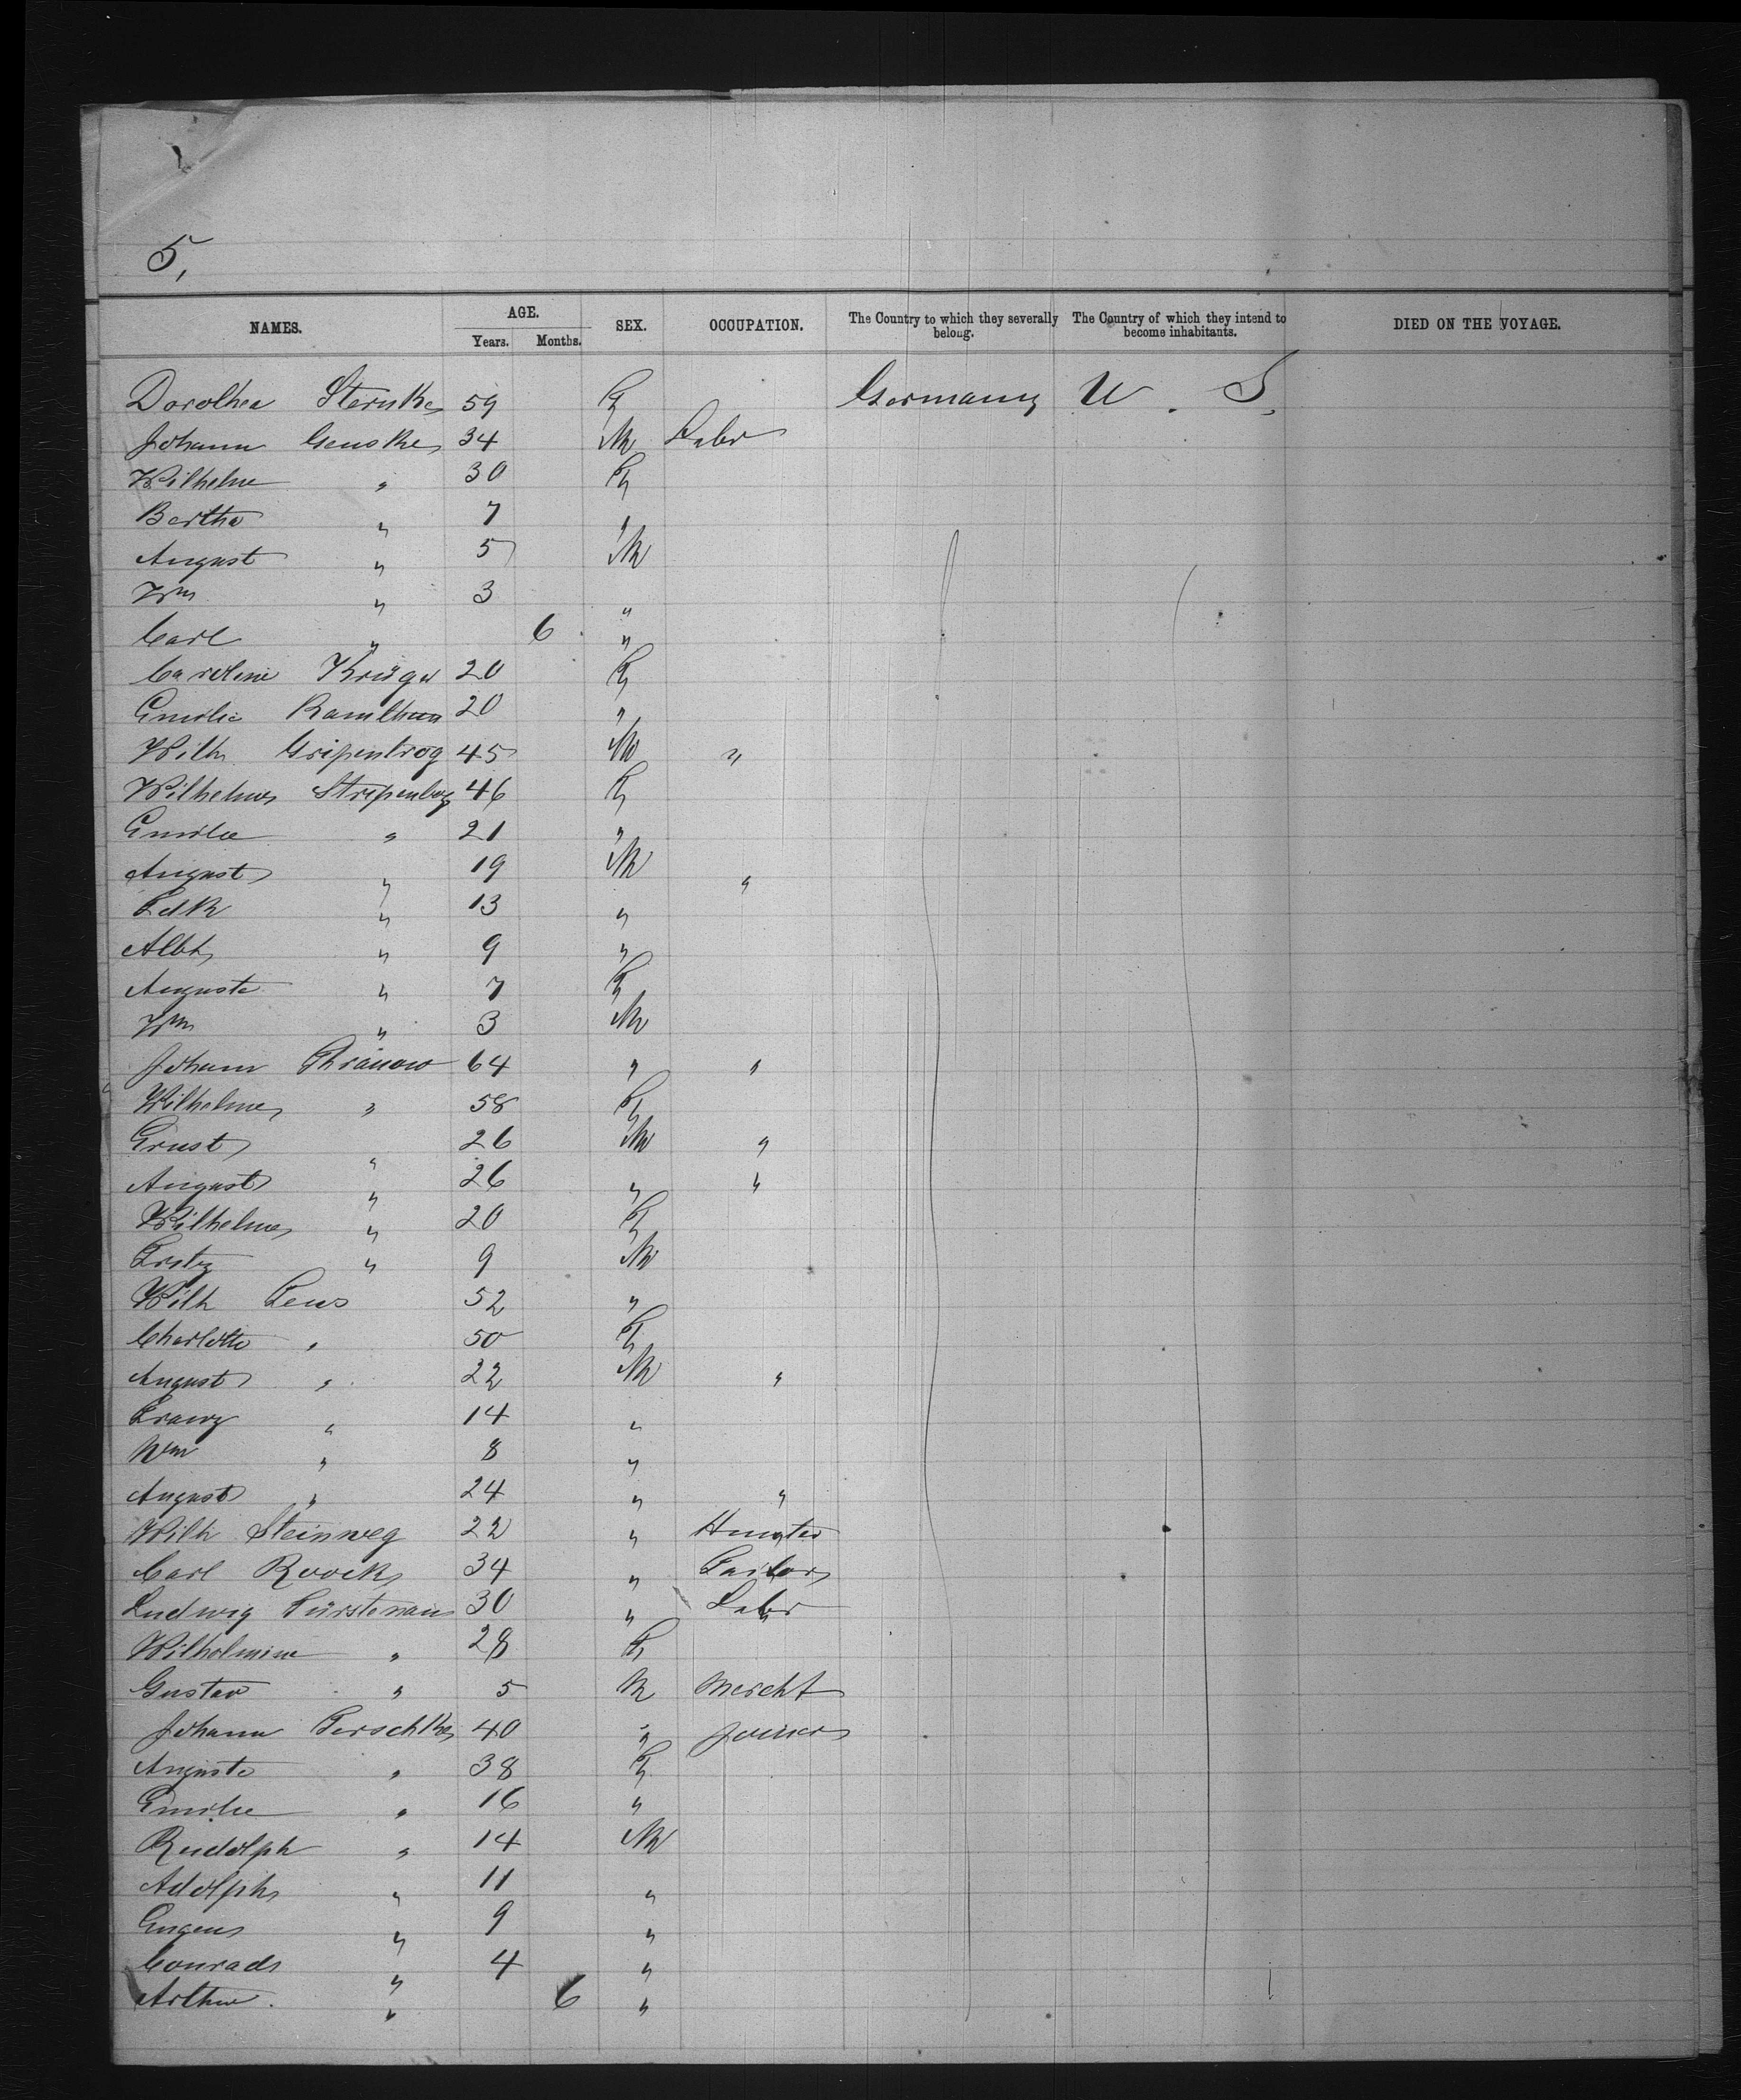 5,
NAMES. AGE. SEX. OCCUPATION. The Country to which they severally belong. The Country of which they intend to become inhabitants. DIED ON THE VOYAGE.
Years. Months.
Dorothea Sternke 59 F Germany U. S.
Johann Genske 34 M Labr
Wilhelme " 30 F
Bertha " 7 "
August " 5 M
Wm " 3 "
Carl " 6 "
Caroline Krüger 20 F
Emilie Ramthun 20 "
Wilh Gripentrog 45 M "
Wilhelme Stripentrog 46 F
Emilie " 21 "
August " 19 M "
Edk " 13 "
Albt " 9 "
Auguste " 7 F
Wm " 3 M
Johann Thranow 64 " "
Wilhelme " 58 F
Ernst " 26 M "
August " 26 " "
Wilhelme " 20 F
" 9 M
Wilh Lens 52 "
Charlotte " 50 F
August " 22 M "
Franz " 14 "
Wm " 8 "
August " 24 " "
Wilh Steinweg 22 " Hunter
Carl Roock 34 " Tailor
Ludwig Fürstenau 30 " Labr
Wilhelmine " 28 F
Gustav " 5 M Mercht
Johann Terschke 40 " Joiner
Auguste " 38 F
Emilie " 16 "
Rudolph " 14 M
Adolph " 11 "
Eugen " 9 "
Conrad " 4 "
Arthur. " 6 "